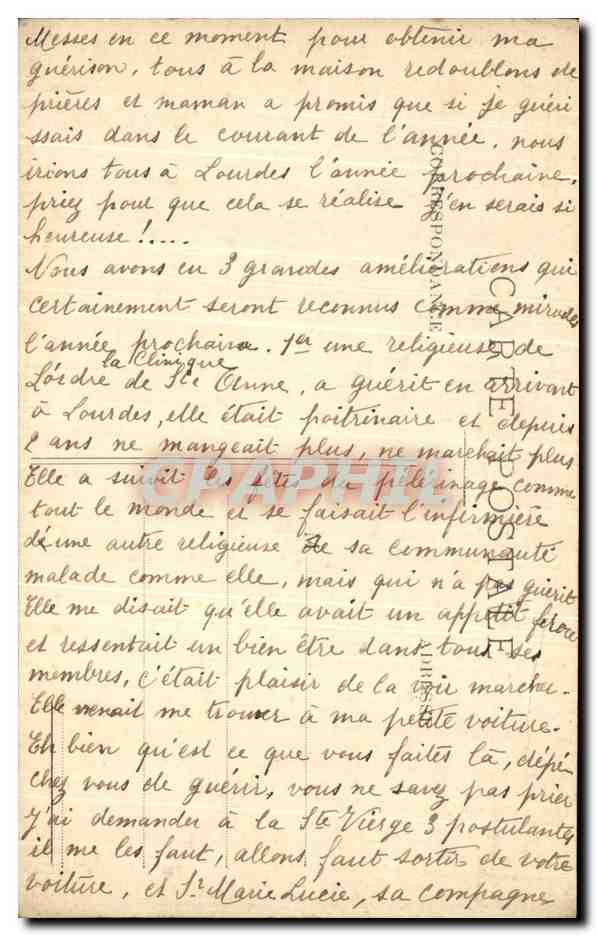 Messes en ce moment pour obtenir ma
guérison, tous à la maison redoublons de
prières et maman a promis que si je guéri
ssais dans le courant de l'année, nous
irions tous à Lourdes l'année prochaine,
priez pour que cela se réalise j'en serais si
heureuse !.....
Nous avons eu 3 grandes améliorations qui
certainement seront reconnus comme miracles
l'année prochaine. 1er une religieuse de
la Clinique
L'ordre de Ste Anne, a guérit en arrivant
à Lourdes, elle était poitrinaire et depuis
2 ans ne mangeait plus, ne marchait plus
Elle a suivit les fêtes du pélérinage comme
tout le monde et se faisait l'infirmière
d'une autre religieuse de sa communauté
malade comme elle, mais qui n'a pas guérit
Elle me disait qu'elle avait un appétit féroce
et ressentait un bien être dans tous ses
membres, c'était plaisir de la voir marcher.
Elle venait me trouver à ma petite voiture.
Eh bien qu'est ce que vous faites là, dépé
chez vous de guérir, vous ne savez pas prier
j'ai demander à la Ste Vierge 3 postulantes
il me les faut, allons, faut sortir de votre
voiture, et Sr Marie Lucie, sa compagne
CARTE POSTALE
CORRESPONDANCE
ADRESSE
CPAPHIL